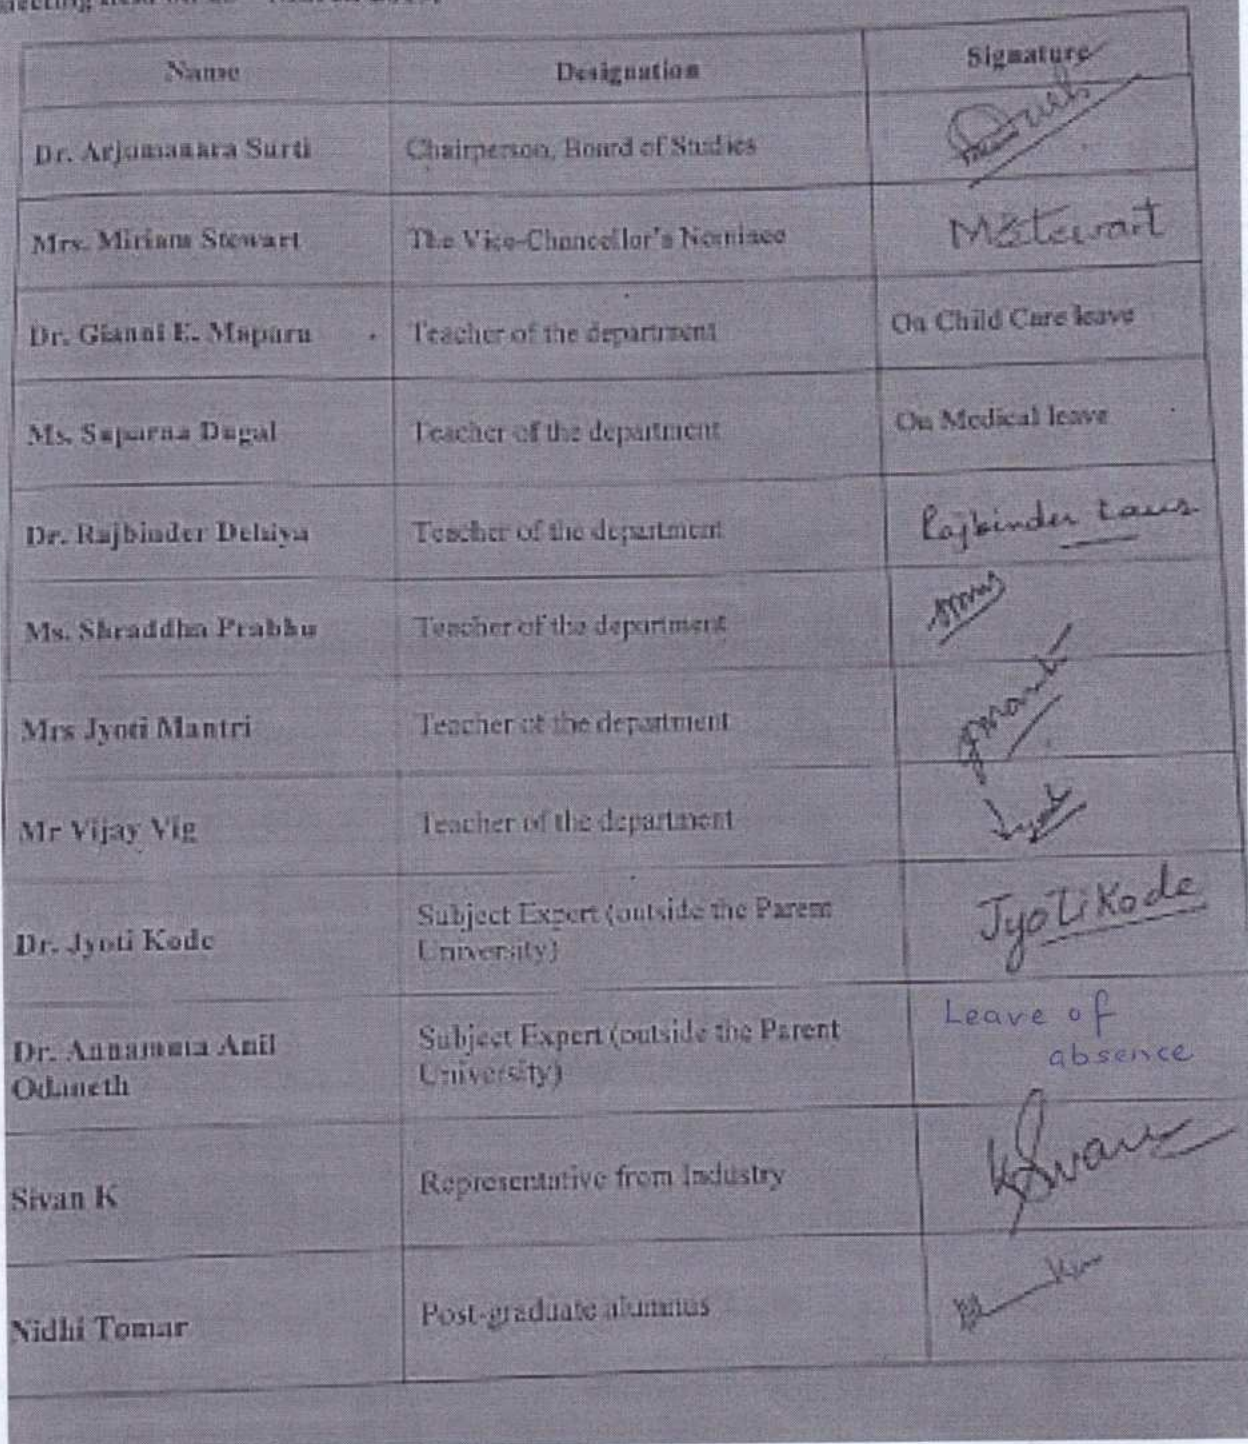 Name Designation Signature
Dr. Arjumanara Surti Chairperson, Board of Studies
Mrs. Miriam Stewart The Vice-Chancellor's Nominee MStewart
Dr. Gianni E. Maparu Teacher of the department On Child Care leave
Ms. Suparna Dugal Teacher of the department On Medical leave
Dr. Rajbinder Dehiya Teacher of the department Rajbinder
Ms. Shraddha Prabhu Teacher of the department
Mrs Jyoti Mantri Teacher of the department
Mr Vijay Vig Teacher of the department
Dr. Jyoti Kode Subject Expert (outside the Parent
University) Jyoti Kode
Dr. Annamma Anil Subject Expert (outside the Parent Leave of
Odaneth University) absence
Sivan K Representative from Industry KSivan
Nidhi Tomar Post-graduate alumnus